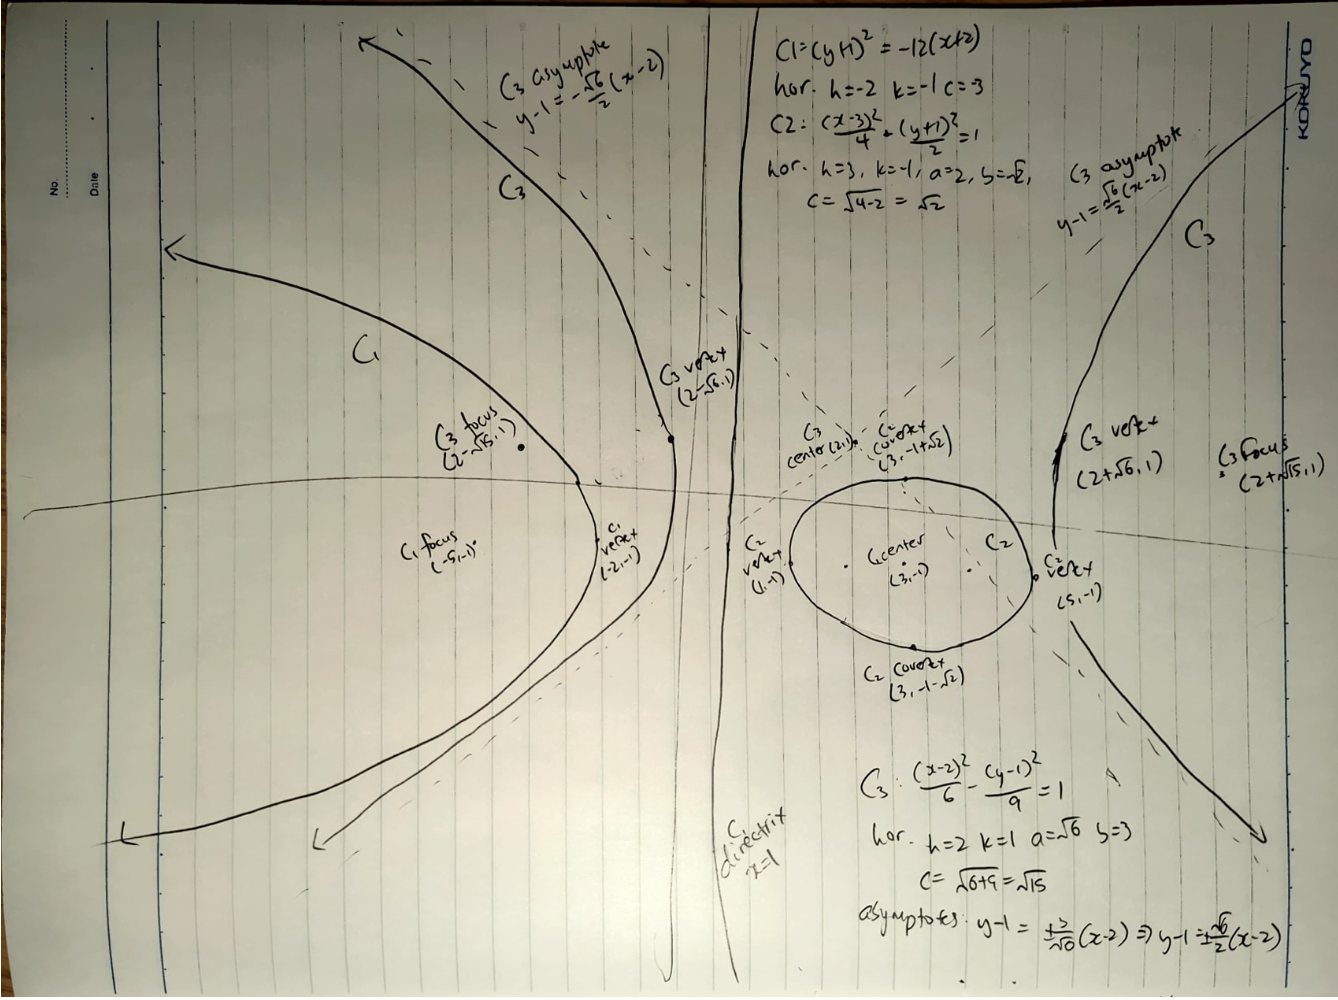 No.
Date
KOKUYO
C1: (y+1)² = -12(x+2)
hor. h=-2 k=-1 c=-3
C2: (x-3)²/4 + (y+1)²/2 = 1
hor. h=3, k=-1, a=2, b=√2,
c = √4-2 = √2
C3 asymptote
y-1 = -√6/2 (x-2)
C3
C3 asymptote
y-1 = √6/2 (x-2)
C3
C1
C3 vertex
(2-√6,1)
C3 focus
(2-√15,1)
C3
center (2,1)
C2
covertex
(3,-1+√2)
C3 vertex
(2+√6,1)
C3 focus
(2+√15,1)
C1 focus
(-5,-1)
C1
vertex
(-2,-1)
C2
vertex
(1,-1)
center
(3,-1)
C2
C2
vertex
(5,-1)
C2 covertex
(3,-1-√2)
C1
directrix
x=1
C3: (x-2)²/6 - (y-1)²/9 = 1
hor. h=2 k=1 a=√6 b=3
c = √6+9 = √15
asymptotes: y-1 = ±3/√6 (x-2) ⇒ y-1 = ±√6/2 (x-2)